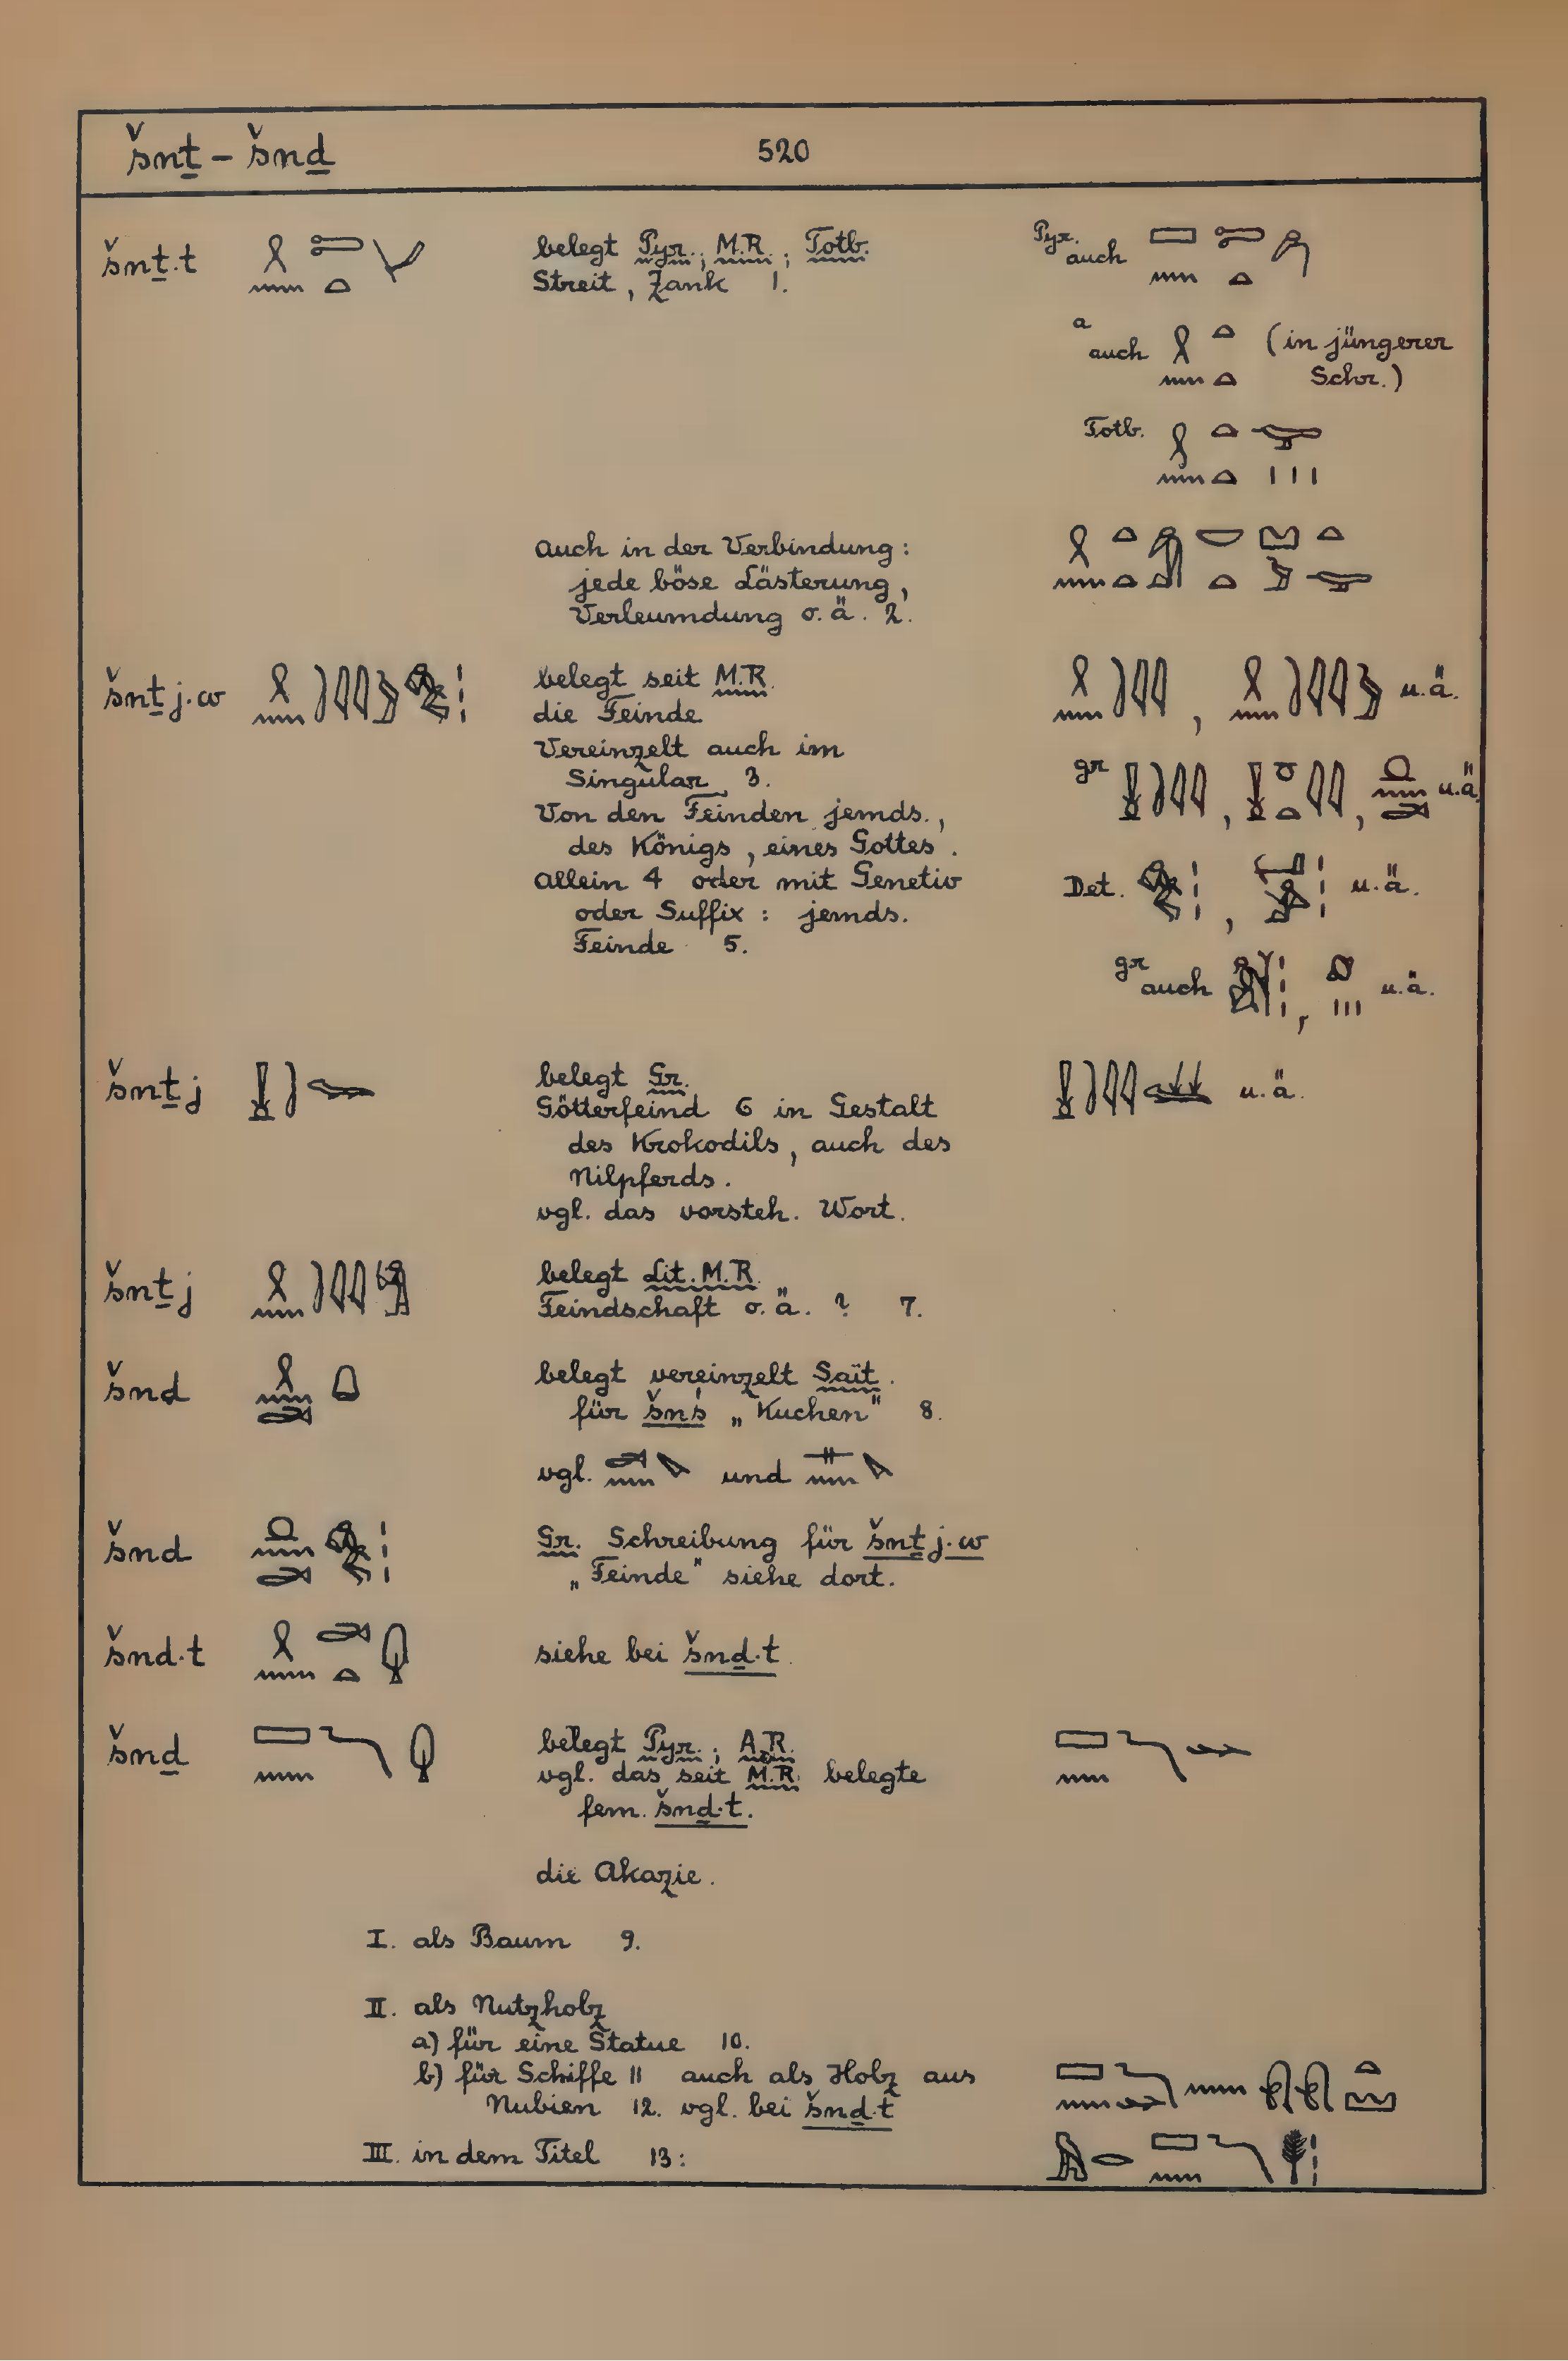 šnṯ – šnḏ 520
šnṯ.t belegt Pyr.; M.R.; Totb. Pyr. auch
Streit, Zank 1.
a auch (in jüngerer
Schr.)
Totb.
auch in der Verbindung:
jede böse Lästerung,
Verleumdung o.ä. 2.
šnṯj.w belegt seit M.R. u.ä.
die Feinde
Vereinzelt auch im
Singular 3. gr , , u.ä.
Von den Feinden jemds.,
des Königs, eines Gottes.
Allein 4 oder mit Genetiv Det. , u.ä.
oder Suffix: jemds.
Feinde 5.
gr auch , u.ä.
šnṯj belegt Gr. u.ä.
Götterfeind 6 in Gestalt
des Krokodils, auch des
Nilpferds.
vgl. das vorsteh. Wort.
šnṯj belegt Lit. M.R.
Feindschaft o.ä. ? 7.
šnd belegt vereinzelt Saït.
für šnś „Kuchen" 8.
vgl. und
šnd Gr. Schreibung für šnṯj.w
„Feinde" siehe dort.
šnd.t siehe bei šnḏ.t.
šnḏ belegt Pyr.; A.R.
vgl. das seit M.R. belegte
fem. šnḏ.t.
die Akazie.
I. als Baum 9.
II. als Nutzholz
a) für eine Statue 10.
b) für Schiffe 11 auch als Holz aus
Nubien 12. vgl. bei šnḏ.t
III. in dem Titel 13: